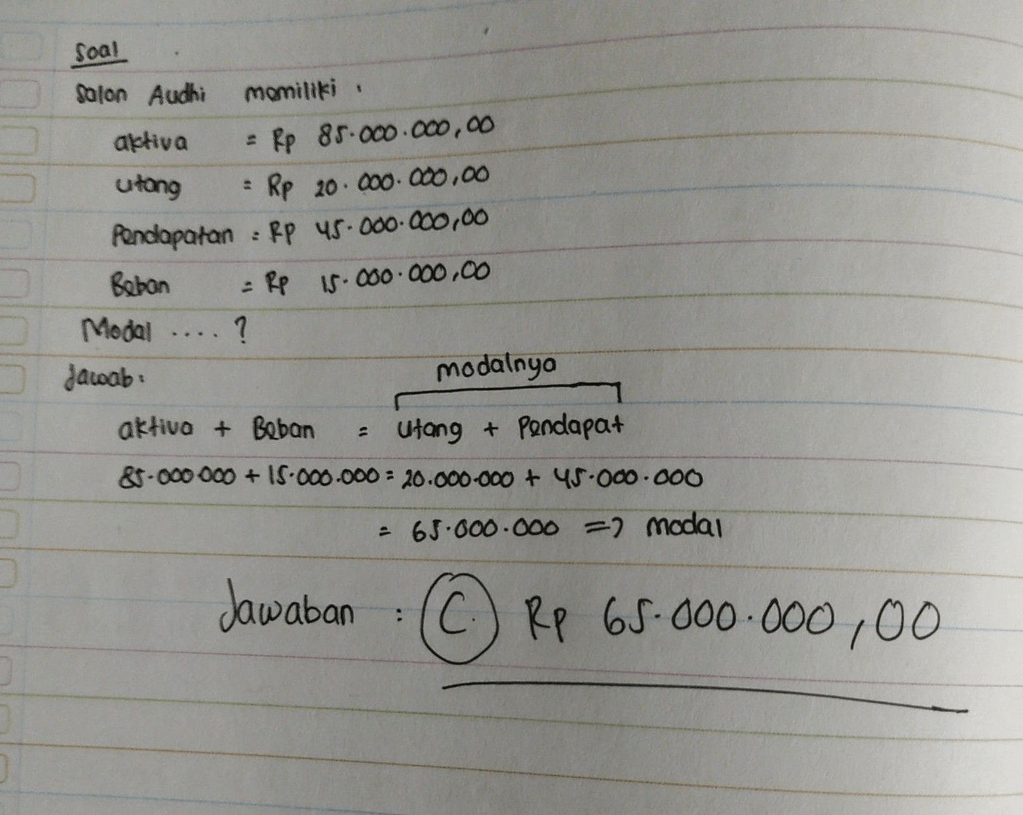 Soal
Salon Audhi memiliki :
aktiva = Rp 85.000.000,00
utang = Rp 20.000.000,00
Pendapatan = Rp 45.000.000,00
Beban = Rp 15.000.000,00
Modal .... ?
Jawab:
modalnya
aktiva + Beban = utang + Pendapat
85.000.000 + 15.000.000 = 20.000.000 + 45.000.000
= 65.000.000 => modal
Jawaban : C. Rp 65.000.000,00